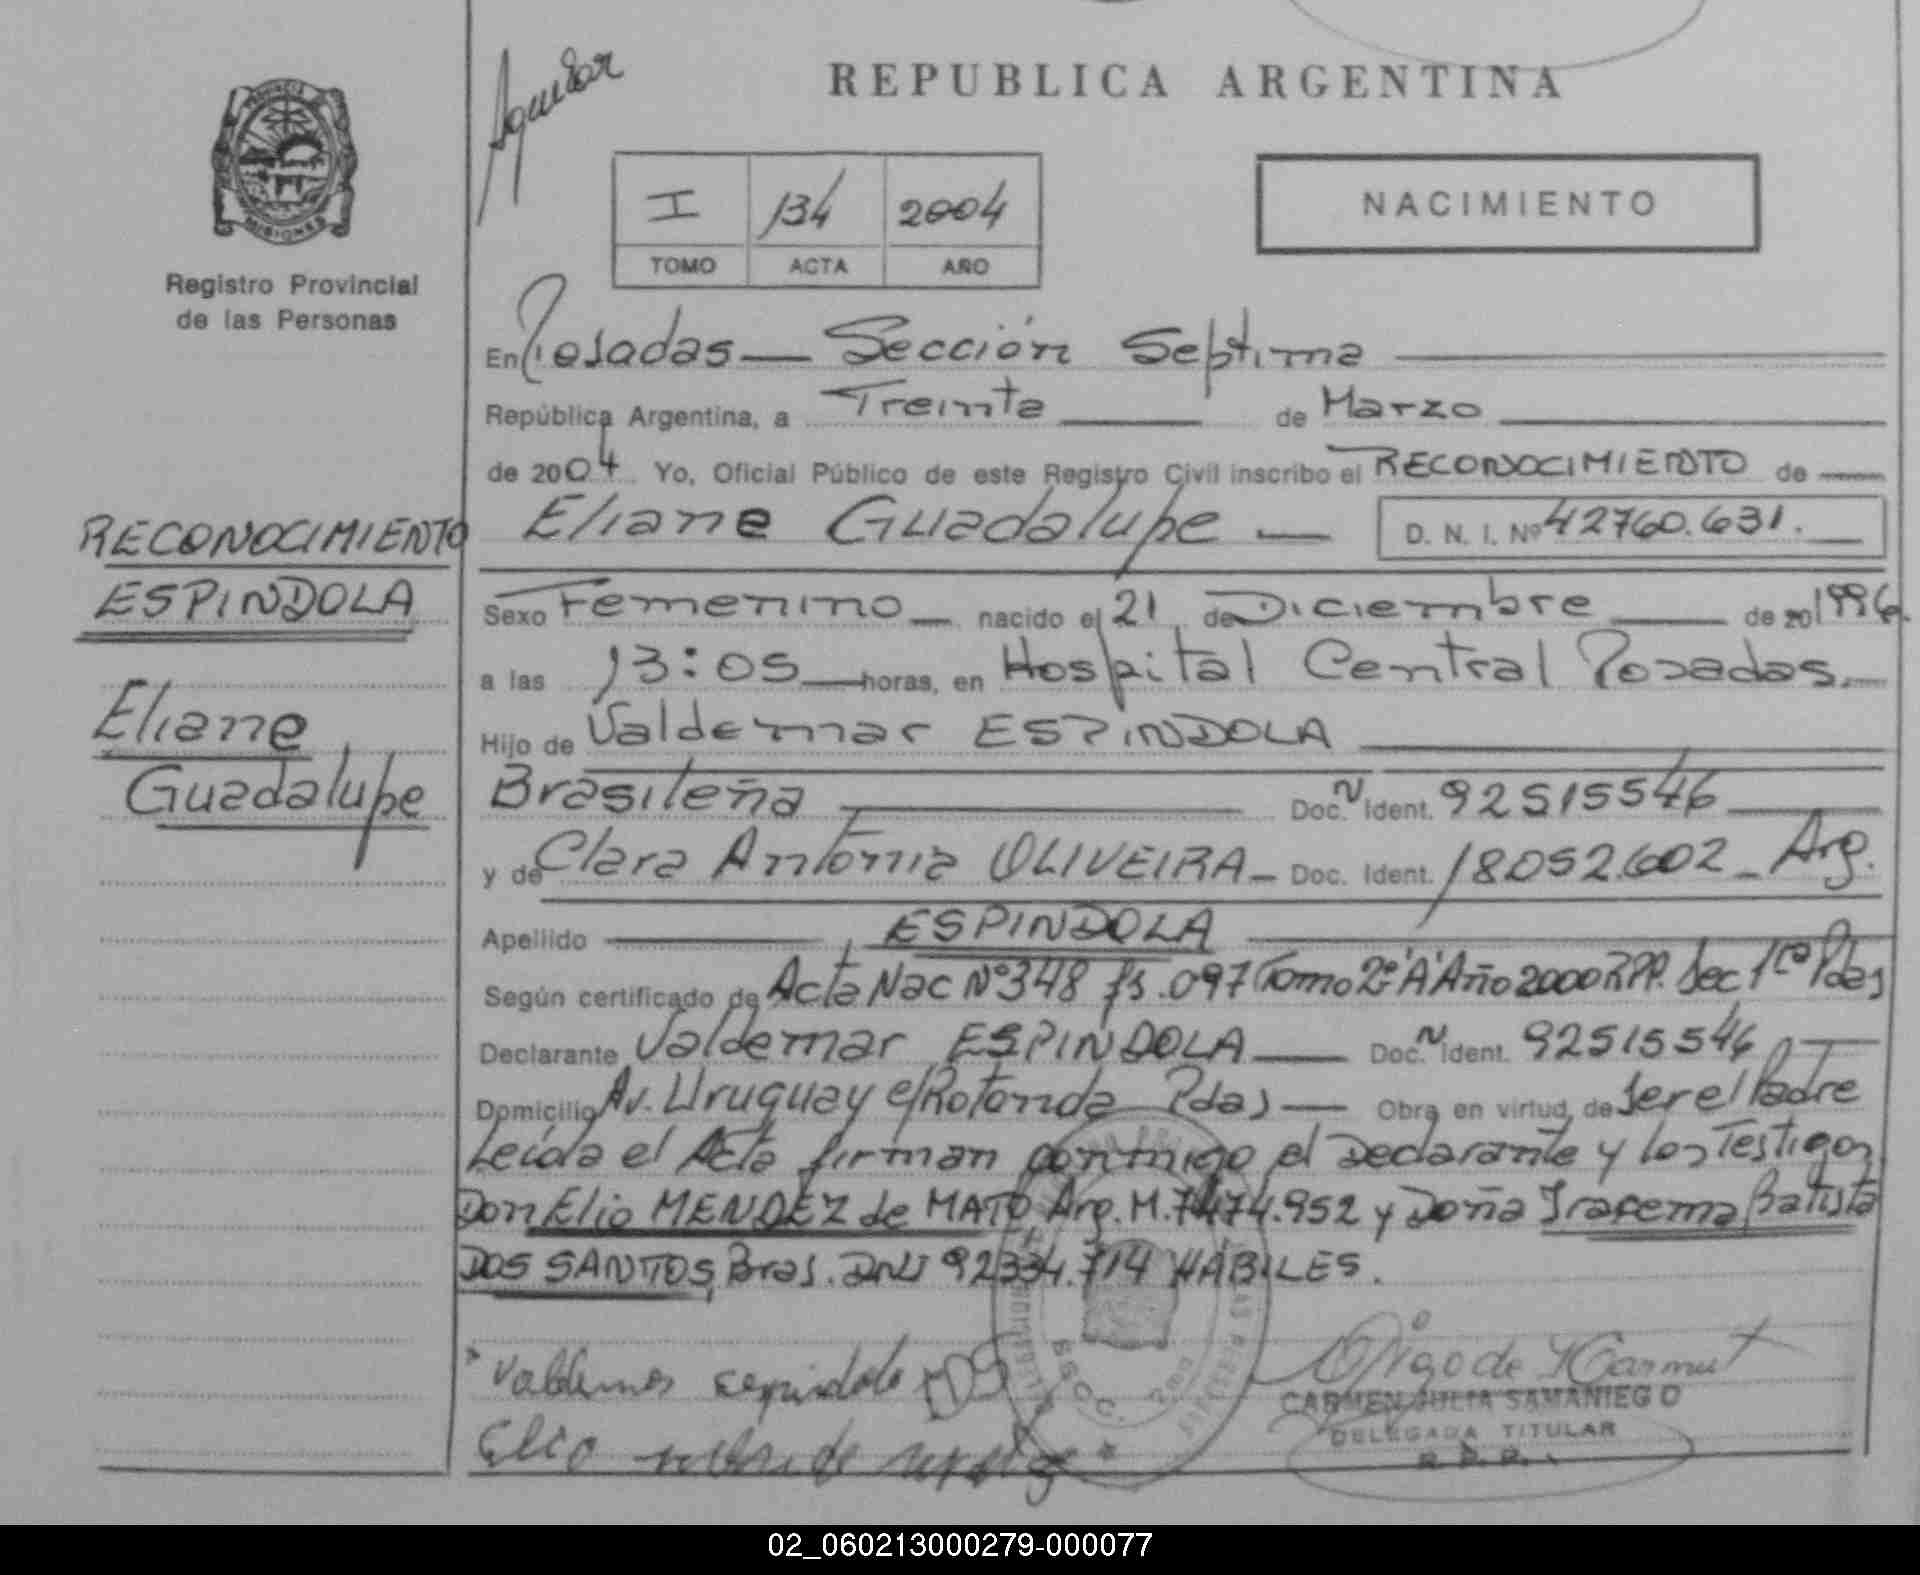 Aguilar
REPUBLICA ARGENTINA
PROVINCIA
MISIONES
Registro Provincial
de las Personas
I 134 2004
TOMO ACTA AÑO
NACIMIENTO
En Posadas — Sección Septima
República Argentina, a Treinta de Marzo
de 2004 Yo, Oficial Público de este Registro Civil inscribo el RECONOCIMIENTO de
Eliane Guadalupe — D. N. I. Nº 42760.631.
RECONOCIMIENTO
ESPINDOLA
Eliane
Guadalupe
Sexo Femenino — nacido el 21 de Diciembre de 20 1996.
a las 13:05 horas, en Hospital Central Posadas.
Hijo de Valdemar ESPINDOLA
Brasileña Doc. Ident. 92515546
y de Clara Antonia OLIVEIRA - Doc. Ident. 18052.602 - Arg.
Apellido ESPINDOLA
Según certificado de Acta Nac Nº 348 fs. 097 Tomo 2º "A" Año 2000 RPP. Sec 1ra Pdas
Declarante Valdemar ESPINDOLA Doc. Ident. 92515546
Domicilio Av. Uruguay e/Rotonda Pdas — Obra en virtud de Ser el Padre
Leída el Acta firman conmigo el Declarante y los Testigos
Don Elio MENDEZ de MATO, Arg. M. 7474.952 y Doña Iracema Batista
DOS SANTOS, Bras. DNI 92334.714 HABILES.
CARMEN JULIA SAMANIEGO
DELEGADA TITULAR
R. P. P.
02_060213000279-000077